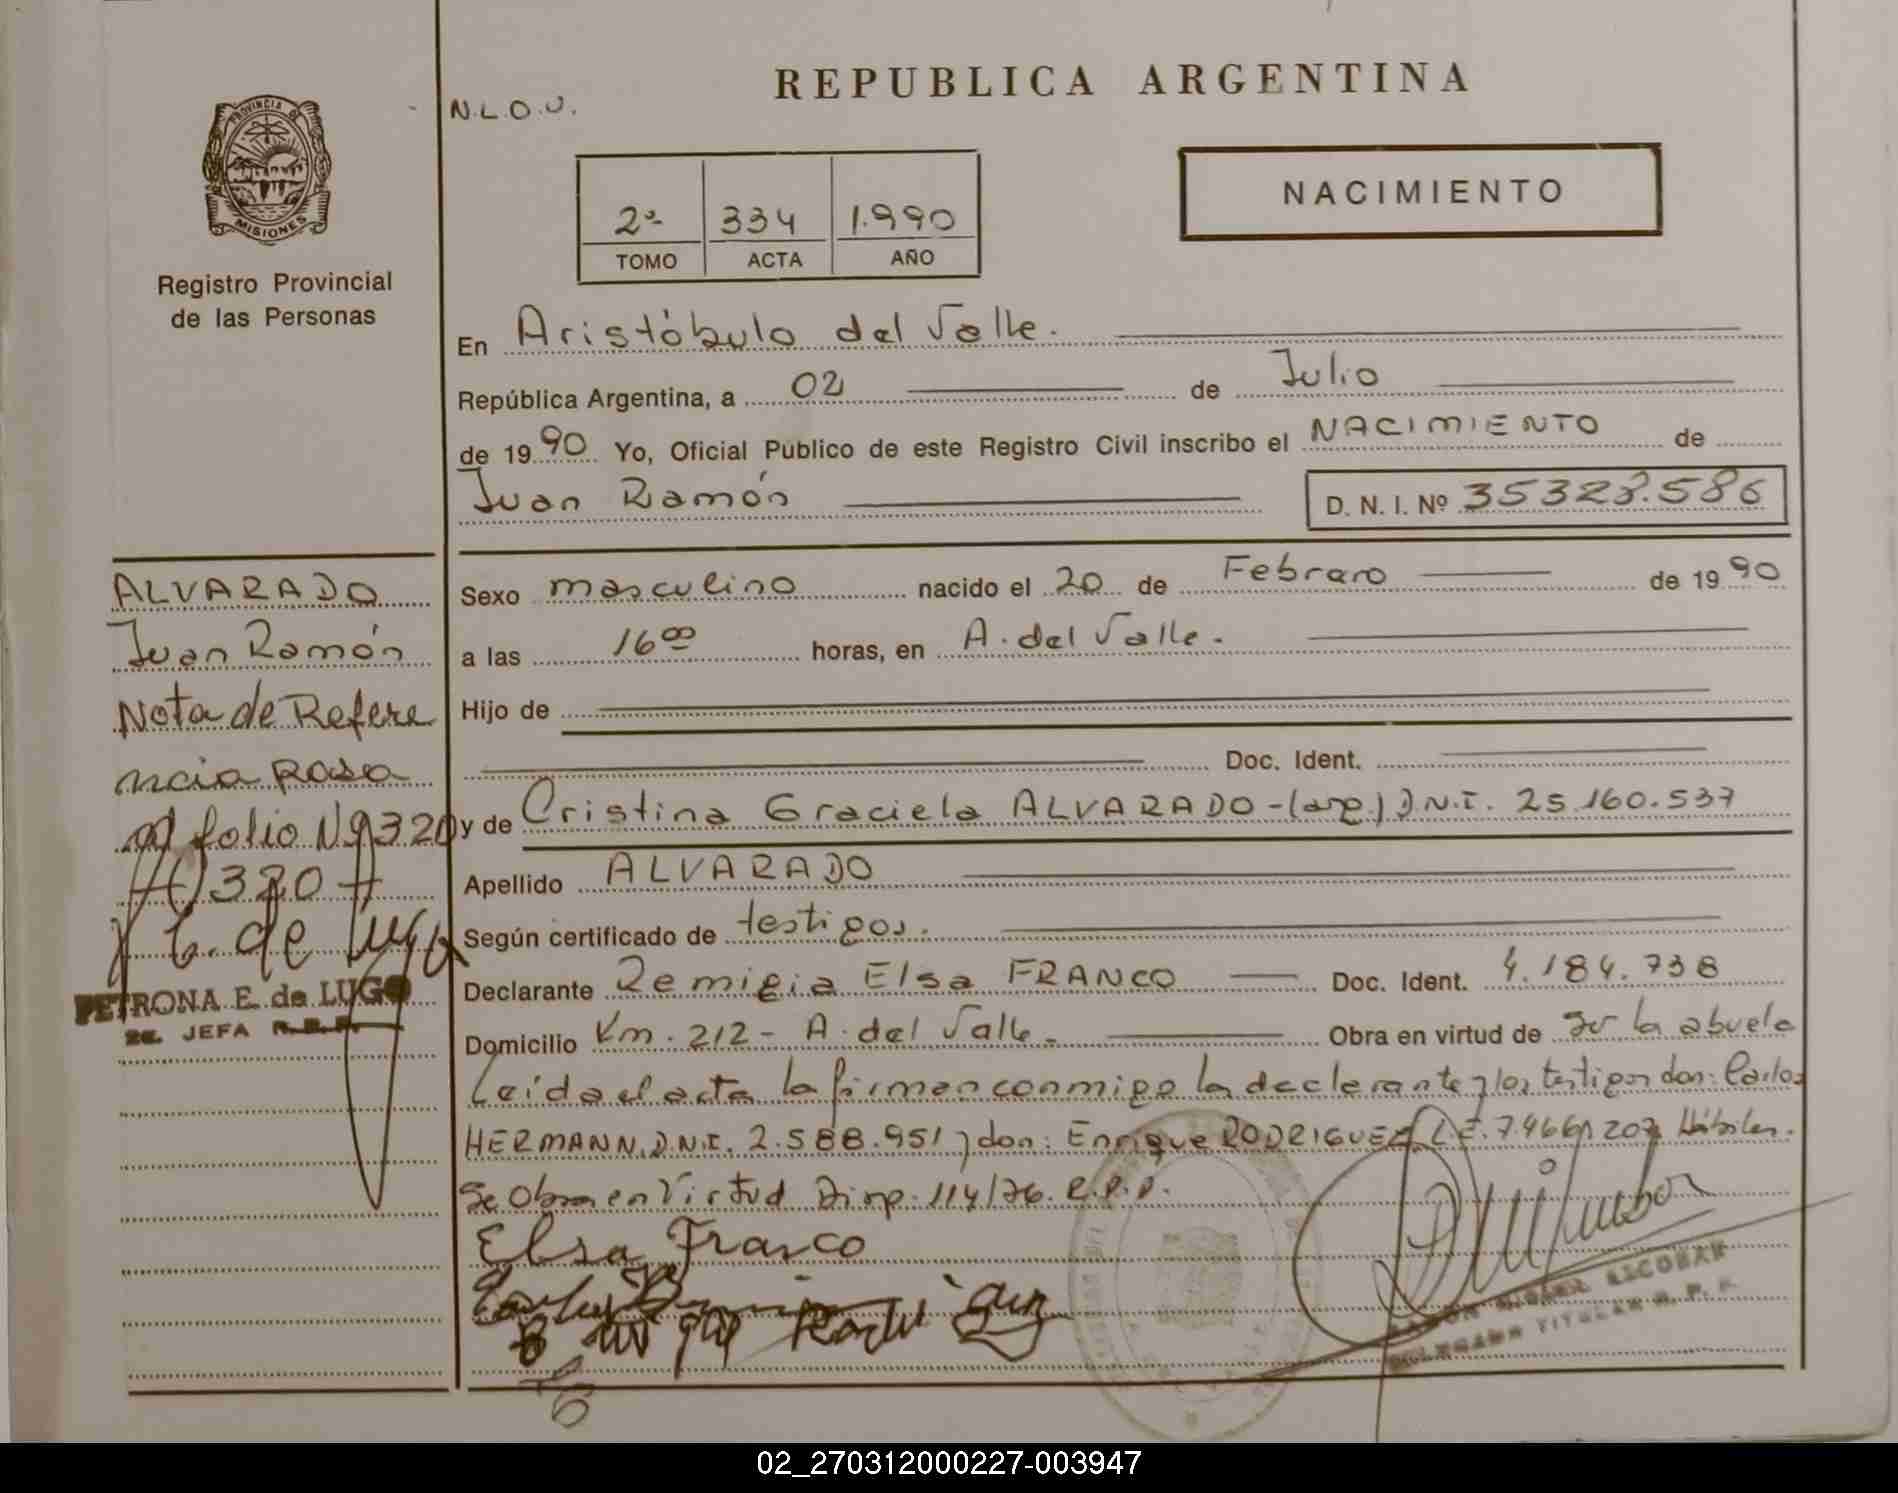 REPUBLICA ARGENTINA
N.L.O.U.
PROVINCIA DE
MISIONES
Registro Provincial
de las Personas
2º 334 1.990
TOMO ACTA AÑO
NACIMIENTO
En Aristóbulo del Valle.
República Argentina, a 02 de Julio
de 1990 Yo, Oficial Publico de este Registro Civil inscribo el NACIMIENTO de
Juan Ramón D. N. I. Nº 35328.586
ALVARADO
Juan Ramón
Nota de Refere
ncia Pasa
al folio Nº 320
320
P. E. de Lugo
PETRONA E. de LUGO
2da. JEFA R.P.P.
Sexo masculino nacido el 20 de Febrero de 1990
a las 16 00 horas, en A. del Valle.
Hijo de
Doc. Ident.
y de Cristina Graciela ALVARADO-(arg.) D.N.I. 25.160.537
Apellido ALVARADO
Según certificado de testigos.
Declarante Remigia Elsa FRANCO Doc. Ident. 4.184.738
Domicilio Km. 212- A. del Valle. Obra en virtud de ser la abuela
Leída el acta la firman conmigo la declarante y los testigos don: Carlos
HERMANN, D.N.I. 2.588.951 y don: Enrique RODRIGUEZ L.E. 7.466. 207 Hábiles.
Se Obra en Virtud Disp. 114/76. R.P.P.
Elsa Franco
RAMON MIGUEL ESCOBAR
DELEGADO TITULAR R. P. P.
02_270312000227-003947